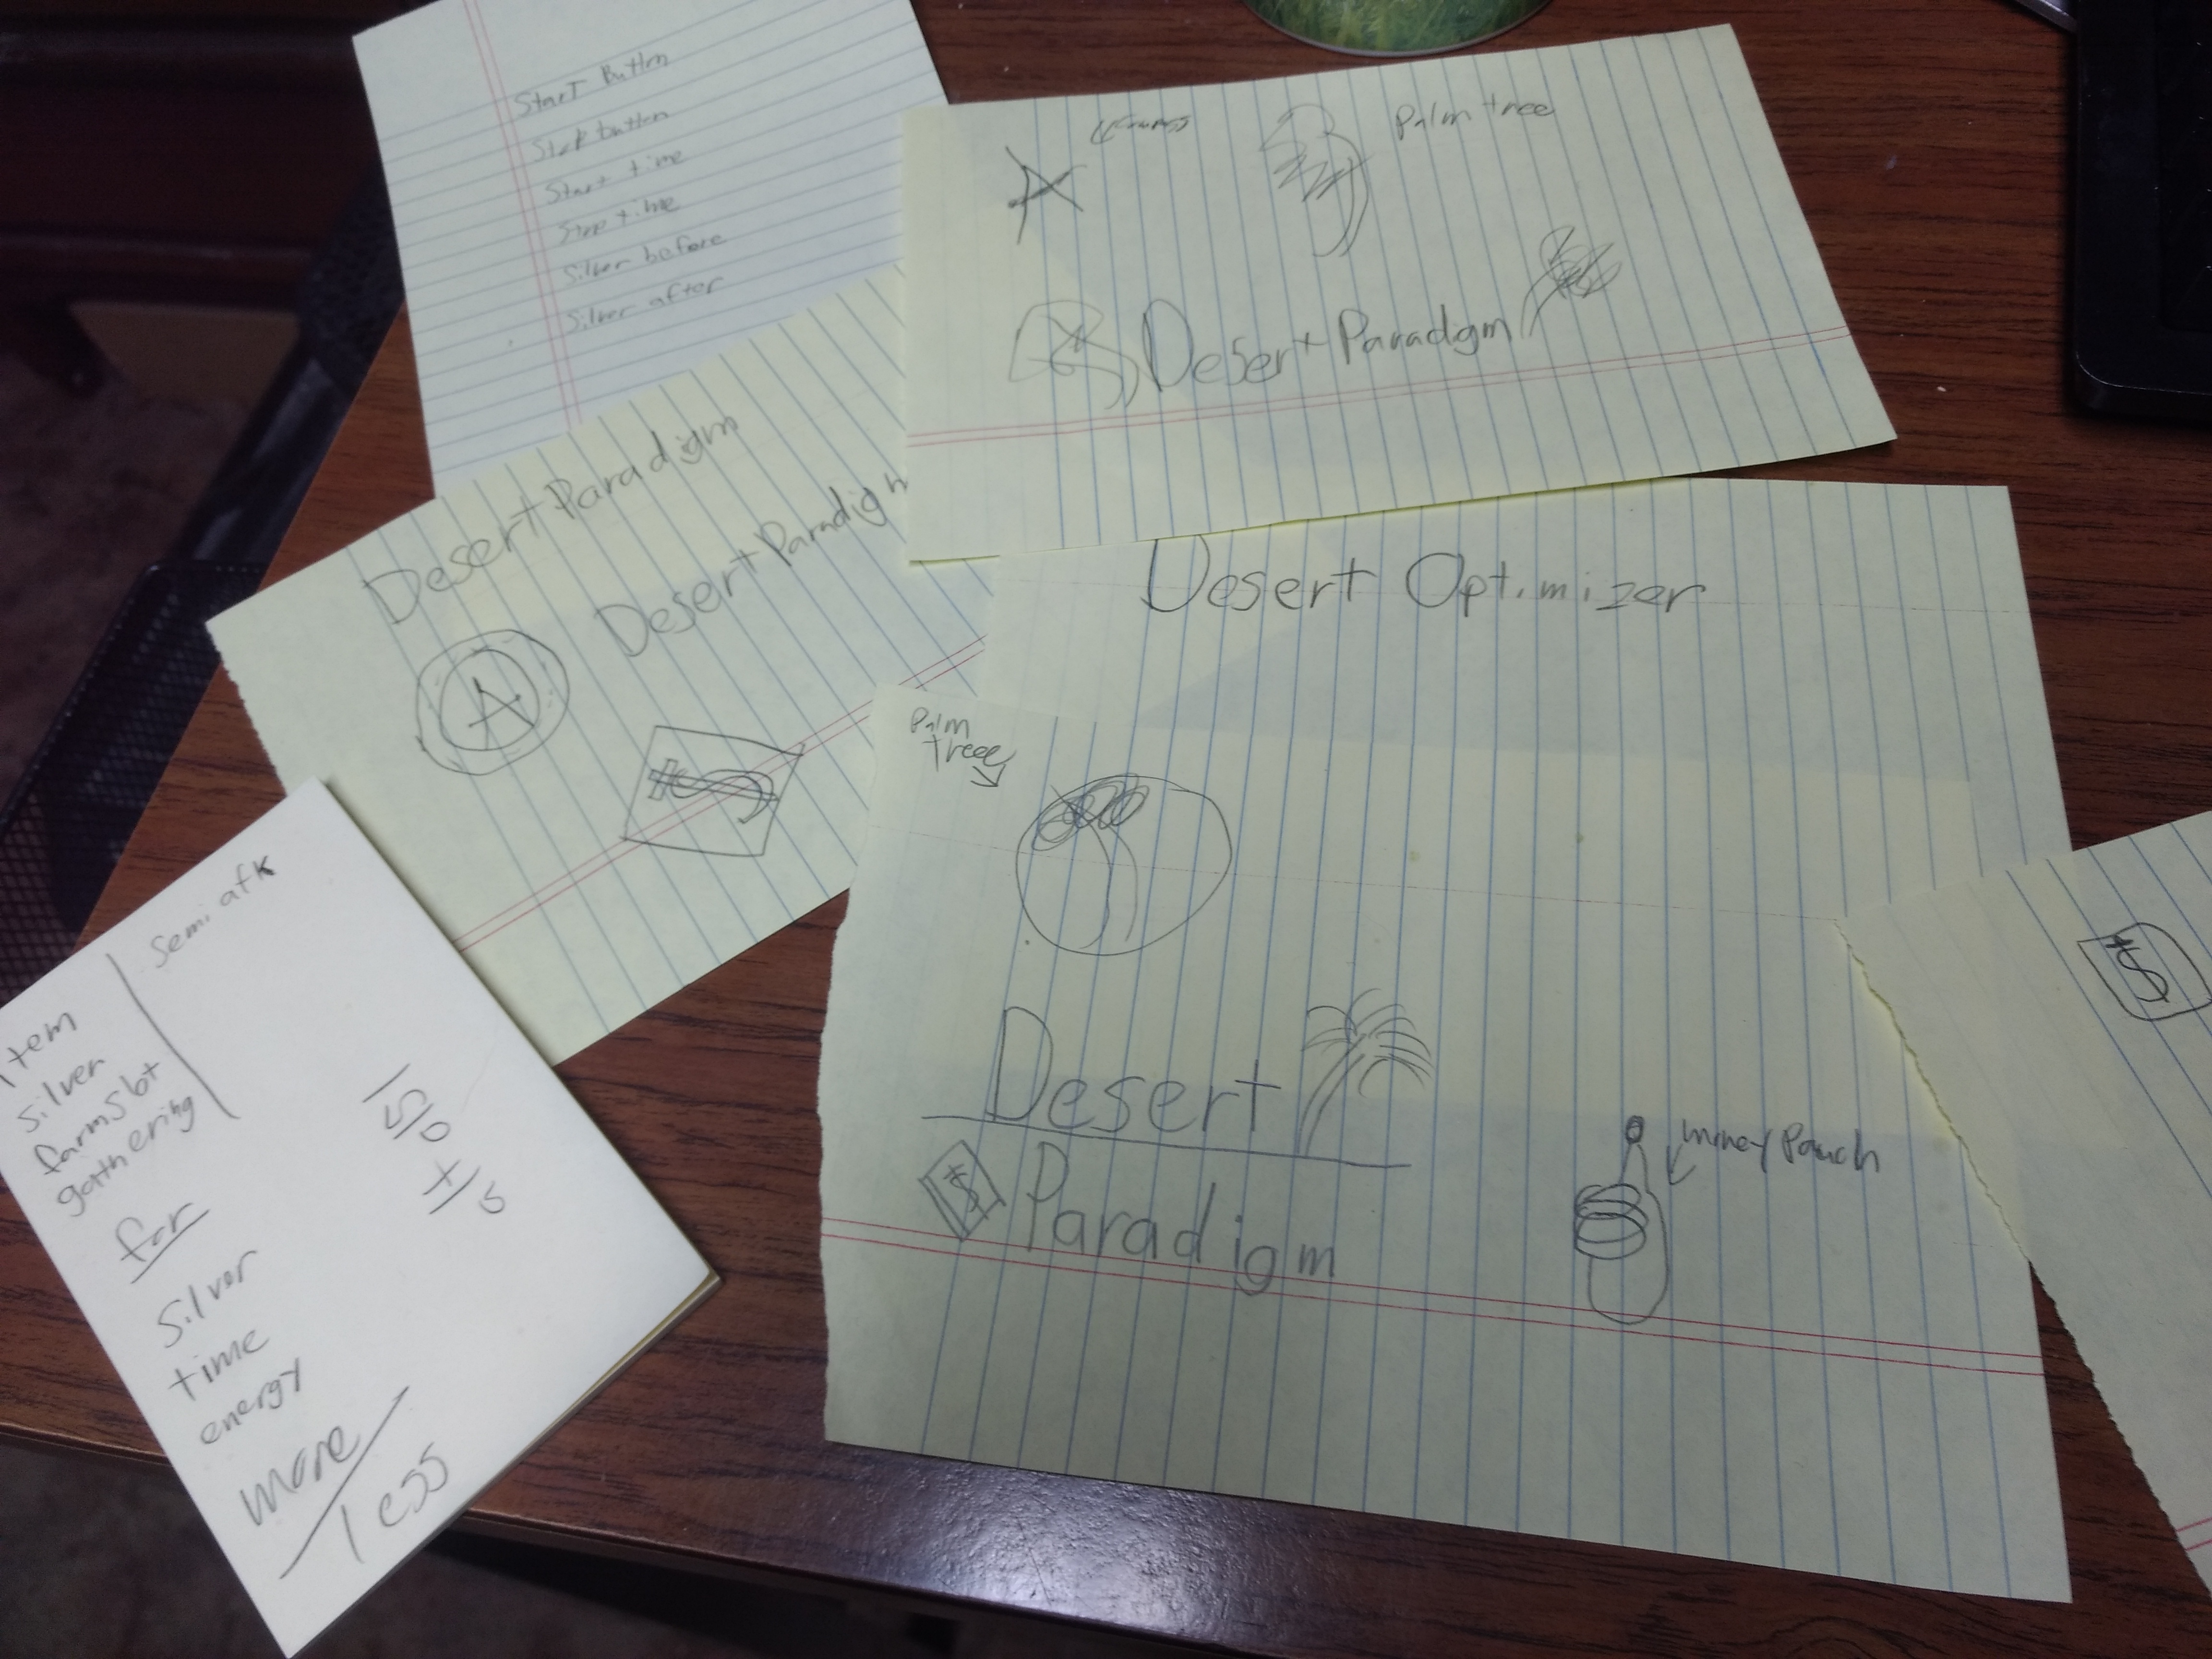 Start Button
Stop button
Start time
Stop time
Silver before
Silver after
palm tree
Desert Paradigm
Desert Paradigm
Desert Paradigm
A
$
Desert Optimizer
Palm
Treee
Desert
$ Paradigm
money Pouch
$
Semi afk
Item
Silver
farmsbt
gathering
for
Silver
time
energy
more
less
150